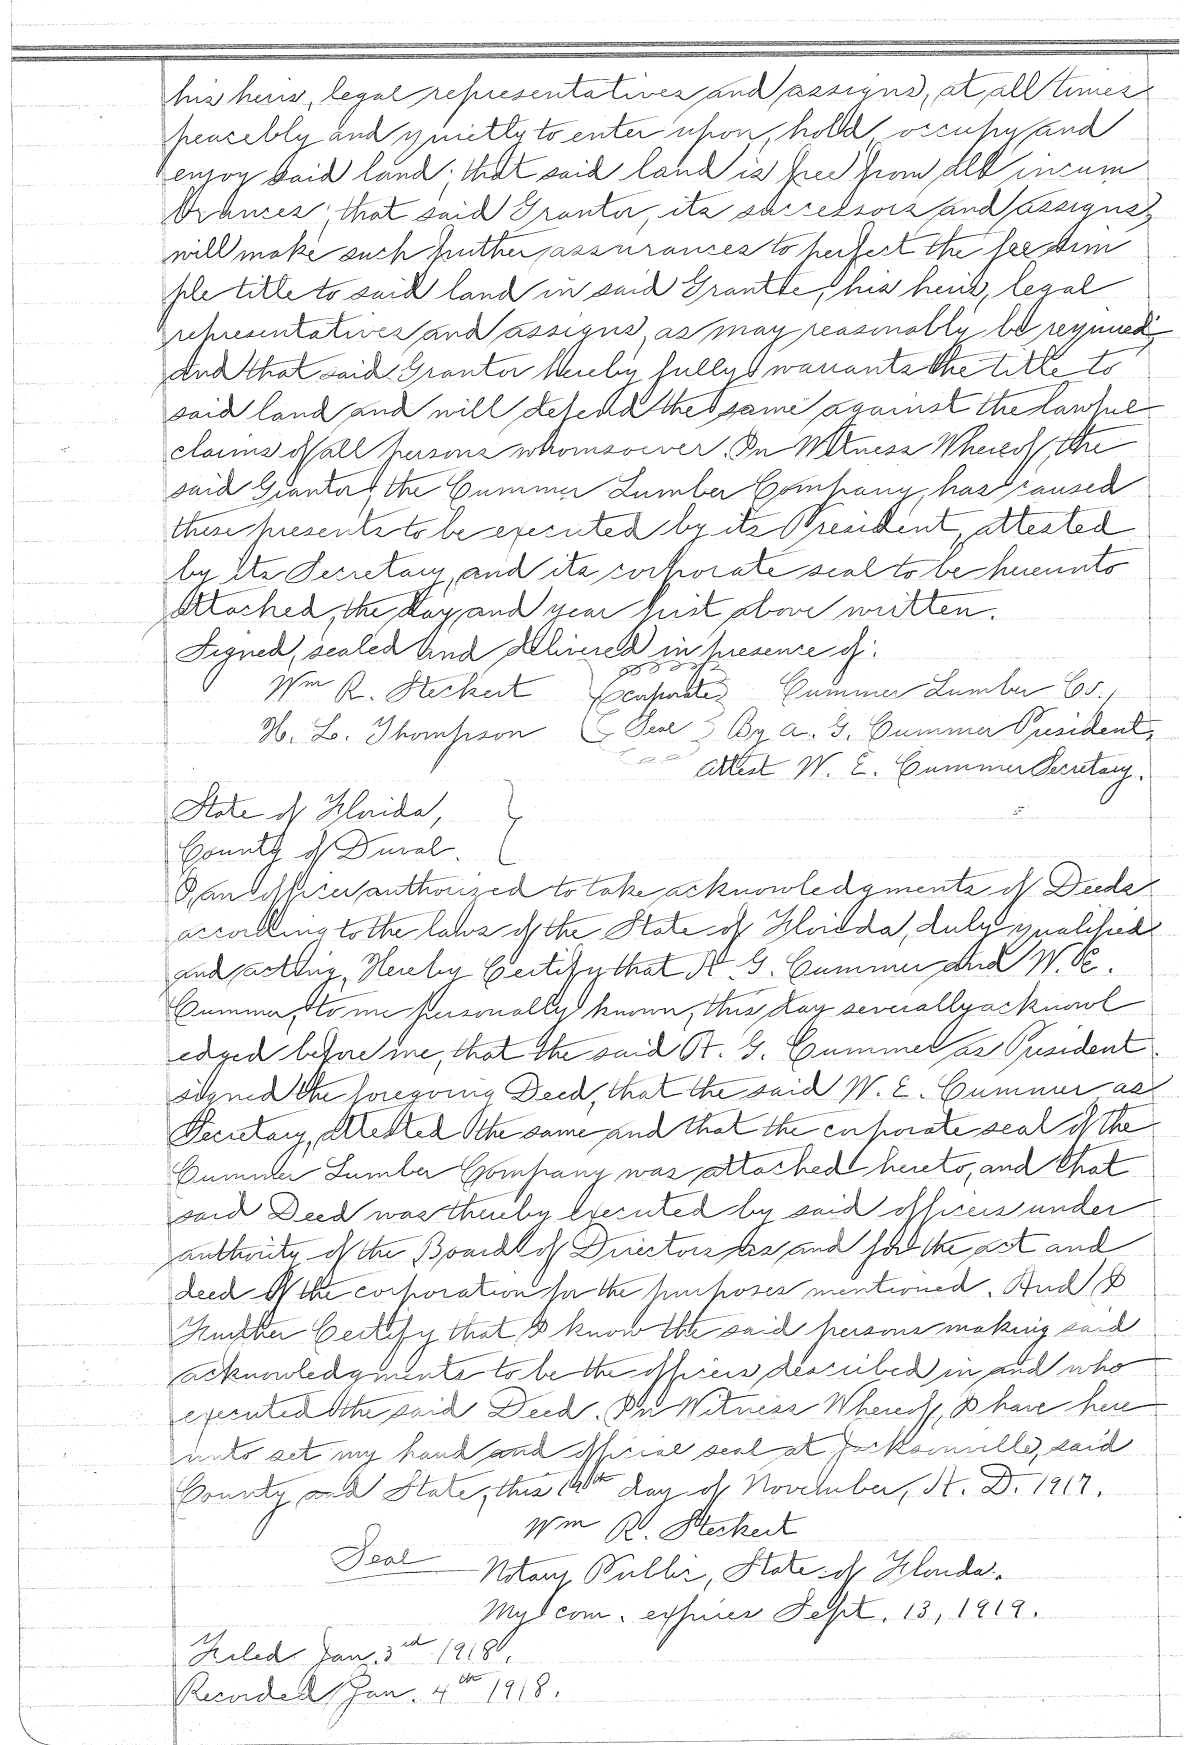 his heirs, legal representatives and assigns, at all times
peacebly and quietly to enter upon, hold, occupy and
enjoy said land; that said land is free from all incum
brances; that said Grantor, its successors and assigns,
will make such further assurances to perfect the fee sim
ple title to said land in said Grantee, his heirs, legal
representatives and assigns, as may reasonably be required;
and that said Grantor hereby fully warrants the title to
said land and will defend the same against the lawful
claims of all persons whomsoever. In Witness Whereof, the
said Grantor, the Cummer Lumber Company, has caused
these presents to be executed by its President, attested
by its Secretary, and its corporate seal to be hereunto
attached, the day and year first above written.
Signed, sealed and delivered in presence of:
Wm R. Steckert (Corporate) Cummer Lumber Co.,
H. L. Thompson ( Seal ) By A. G. Cummer President,
Attest W. E. Cummer Secretary.
State of Florida,
County of Duval.
I, an officer authorized to take acknowledgments of Deeds
according to the laws of the State of Florida, duly qualified
and acting, Hereby Certify that A. G. Cummer and W. E.
Cummer, to me personally known, this day severally acknowl
edged before me, that the said A. G. Cummer as President
signed the foregoing Deed, that the said W. E. Cummer as
Secretary, attested the same and that the corporate seal of the
Cummer Lumber Company was attached hereto, and that
said Deed was thereby executed by said officers under
authority of the Board of Directors as and for the act and
deed of the corporation for the purposes mentioned. And I
Further Certify that I know the said persons making said
acknowledgments to be the officers described in and who
executed the said Deed. In Witness Whereof, I have here
unto set my hand and official seal at Jacksonville, said
County and State, this 19th day of November, A. D. 1917.
Wm R. Steckert
Seal Notary Public, State of Florida.
My com. expires Sept. 13, 1919.
Filed Jan. 3rd 1918.
Recorded Jan. 4th 1918.